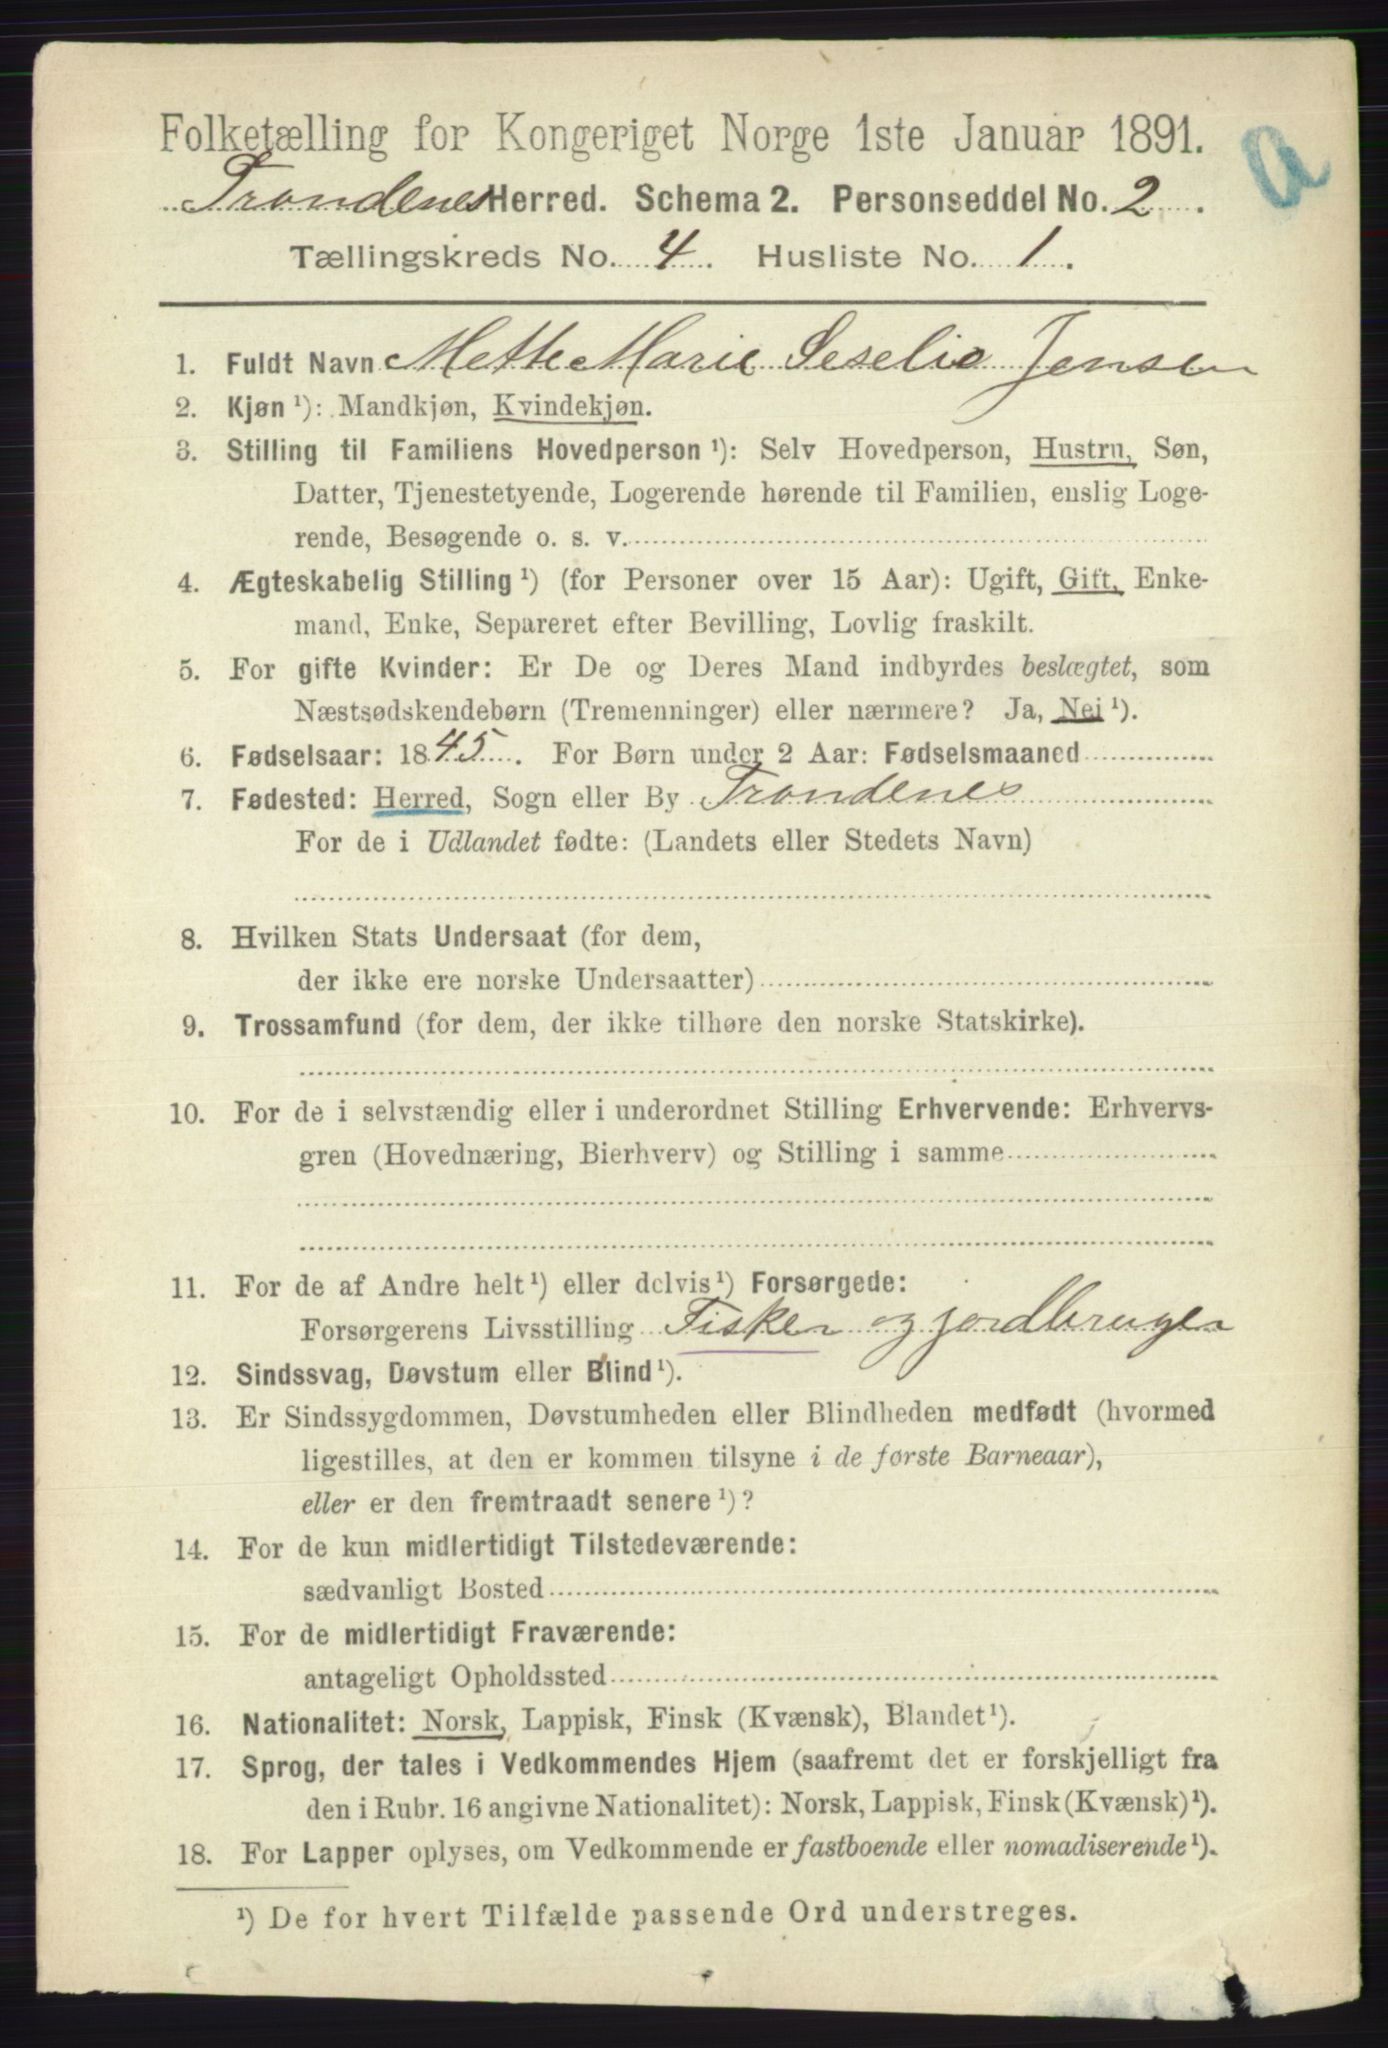 Folketælling for Kongeriget Norge 1ste Januar 1891.
a
Trondenes Herred. Schema 2. Personseddel No. 2.
Tællingskreds No. 4. Husliste No. 1.
1. Fuldt Navn Mette Marie Seselie Jensen
2. Kjøn ¹): Mandkjøn, Kvindekjøn.
3. Stilling til Familiens Hovedperson ¹): Selv Hovedperson, Hustru, Søn,
Datter, Tjenestetyende, Logerende hørende til Familien, enslig Loge-
rende, Besøgende o. s. v.
4. Ægteskabelig Stilling ¹) (for Personer over 15 Aar): Ugift, Gift, Enke-
mand, Enke, Separeret efter Bevilling, Lovlig fraskilt.
5. For gifte Kvinder: Er De og Deres Mand indbyrdes beslægtet, som
Næstsødskendebørn (Tremenninger) eller nærmere? Ja, Nei ¹).
6. Fødselsaar: 1845. For Børn under 2 Aar: Fødselsmaaned
7. Fødested: Herred, Sogn eller By Trondenes
For de i Udlandet fødte: (Landets eller Stedets Navn)
8. Hvilken Stats Undersaat (for dem,
der ikke ere norske Undersaatter)
9. Trossamfund (for dem, der ikke tilhøre den norske Statskirke).
10. For de i selvstændig eller i underordnet Stilling Erhvervende: Erhvervs-
gren (Hovednæring, Bierhverv) og Stilling i samme
11. For de af Andre helt ¹) eller delvis ¹) Forsørgede:
Forsørgerens Livsstilling Fisker og jordbruger
12. Sindssvag, Døvstum eller Blind ¹).
13. Er Sindssygdommen, Døvstumheden eller Blindheden medfødt (hvormed
ligestilles, at den er kommen tilsyne i de første Barneaar),
eller er den fremtraadt senere ¹)?
14. For de kun midlertidigt Tilstedeværende:
sædvanligt Bosted
15. For de midlertidigt Fraværende:
antageligt Opholdssted
16. Nationalitet: Norsk, Lappisk, Finsk (Kvænsk), Blandet ¹).
17. Sprog, der tales i Vedkommendes Hjem (saafremt det er forskjelligt fra
den i Rubr. 16 angivne Nationalitet): Norsk, Lappisk, Finsk (Kvænsk) ¹).
18. For Lapper oplyses, om Vedkommende er fastboende eller nomadiserende ¹).
¹) De for hvert Tilfælde passende Ord understreges.